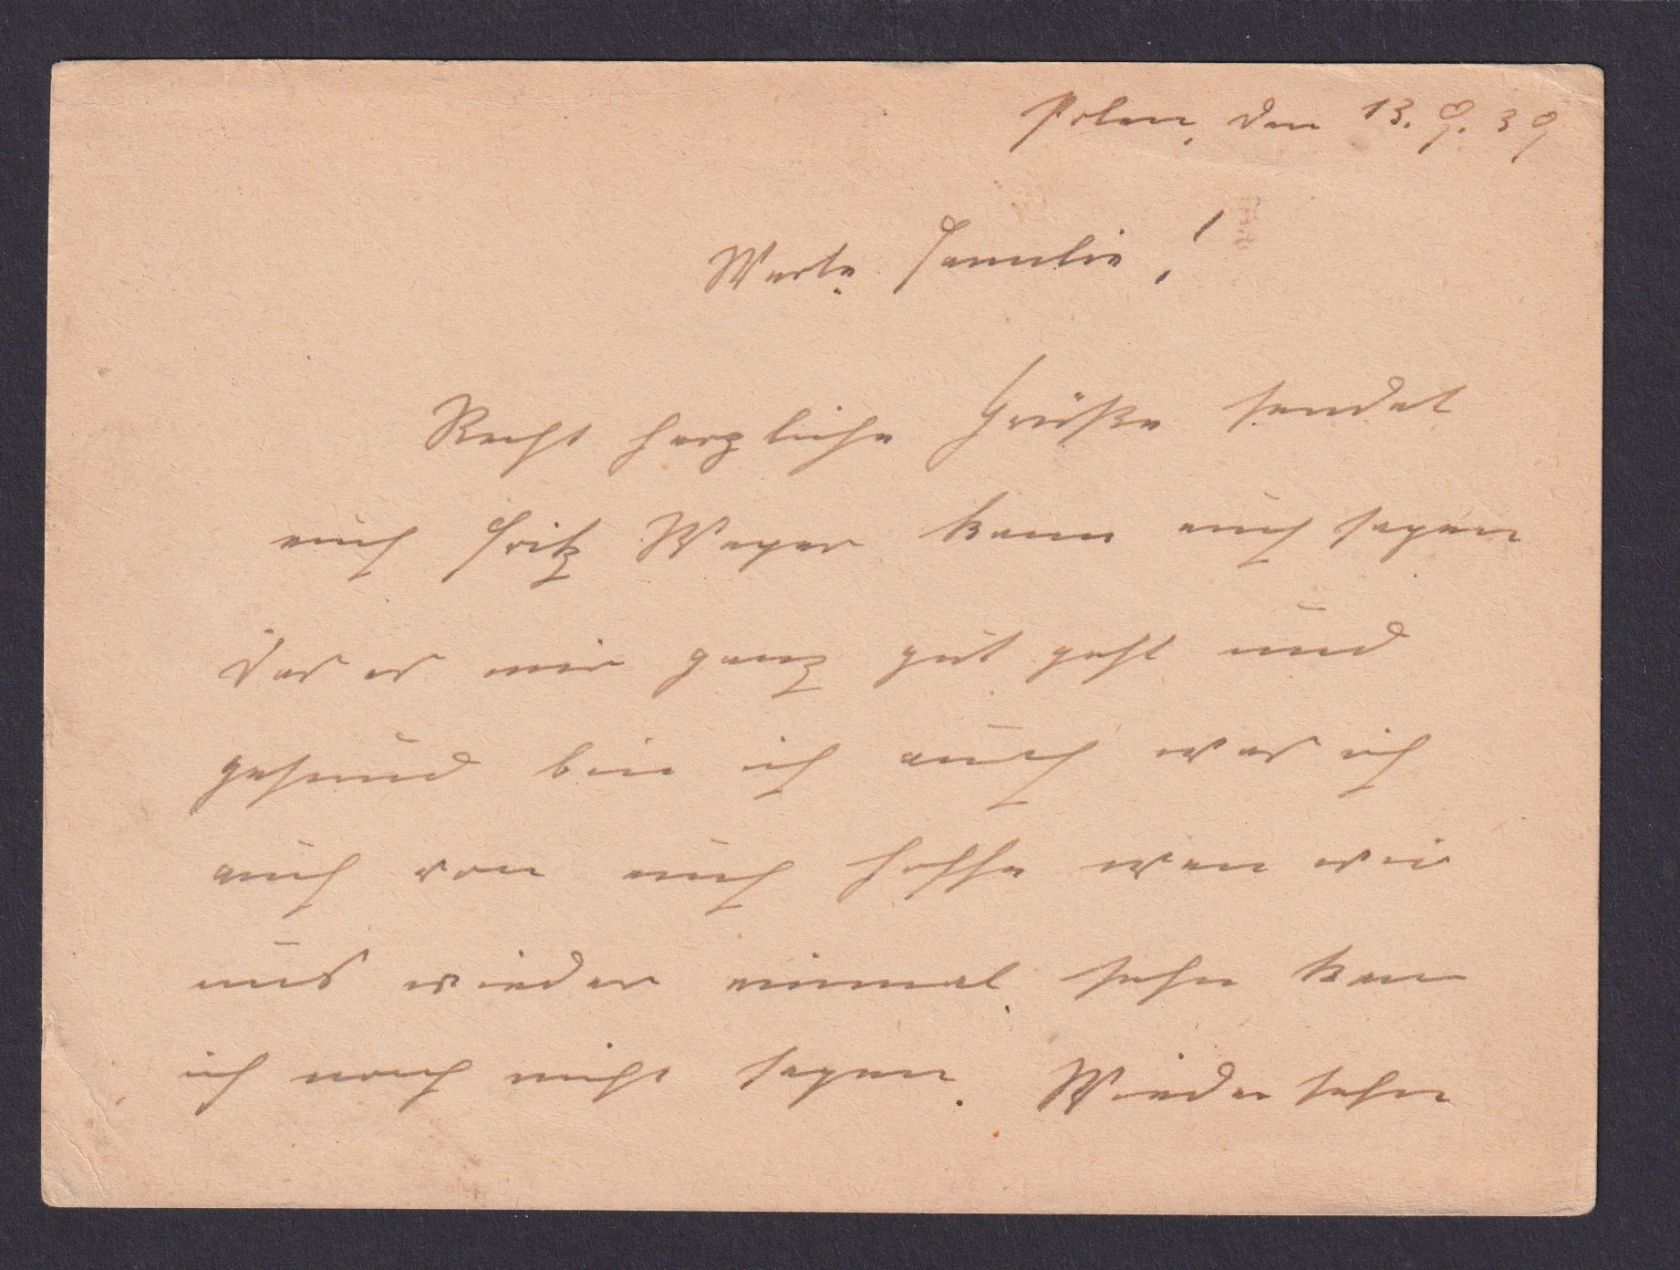 Polen, den 13. 9. 39
Werte Familie!
Recht herzliche Grüße sendet
euch Fritz Weger kann euch sagen
das es mir ganz gut geht und
gesund bin ich auch was ich
auch von euch hoffe wan wir
uns wieder einmal sehn kan
ich noch nicht sagen. Wiedersehn